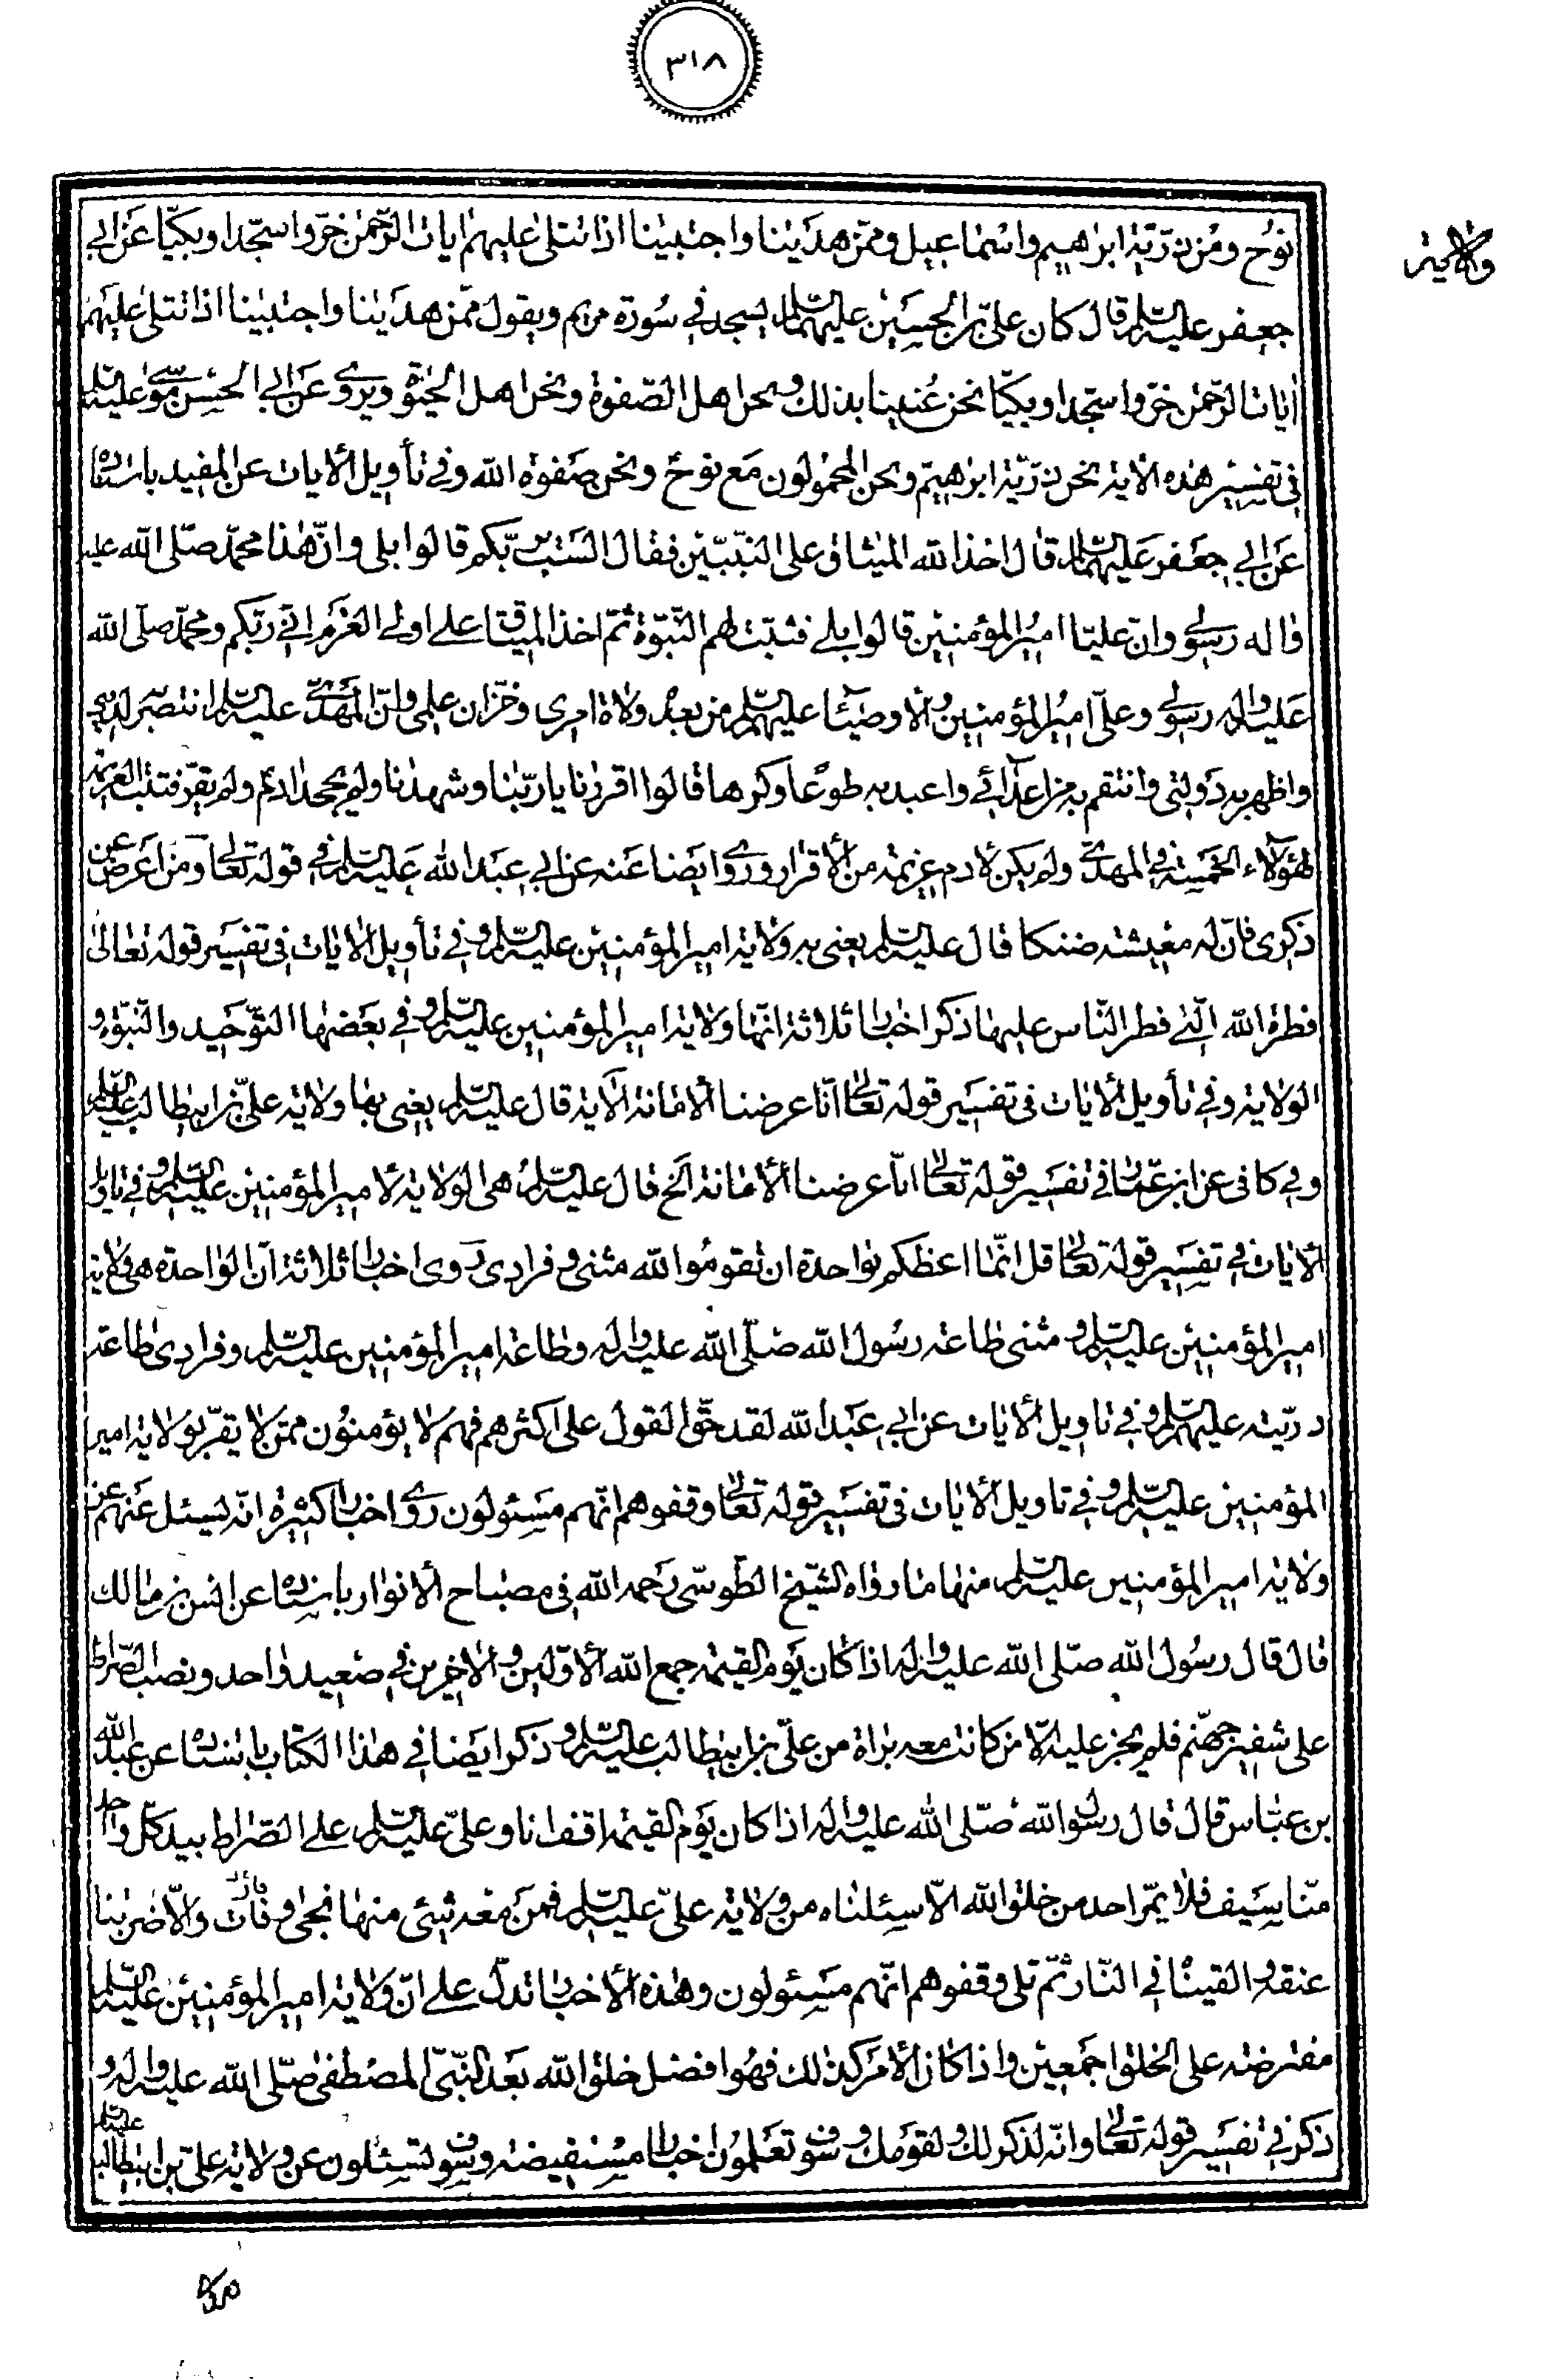 ٣١٨
ولايته
نوح ومن ذرّيّة ابراهيم واسماعيل وممّن هدينا واجتبينا اذا تتلى عليهم ايات الرّحمن خرّوا سجّدا وبكيّا عن ابي
جعفر عليه السلم قال كان علىّ بن الحسين عليهما السلم يسجد في سورة مريم ويقول ممّن هدينا واجتبينا اذا تتلى عليهم
ايات الرّحمن خرّوا سجدا وبكيّا نحن عنينا بذلك ونحن اهل الصّفوة ونحن اهل الحبوة ويروى عن ابي الحسن موسى عليه السلم
في تفسير هذه الاية نحن ذرّيّة ابرهيم ونحن المحمولون مع نوح ونحن صفوة الله وفي تأويل الايات عن المفيد باسناده
عن ابي جعفر عليهما السلم قال اخذ الله الميثاق على النّبيّين فقال الست بربّكم قالوا بلى وانّ هذا محمّد صلّى الله عليه
واله رسولى وانّ عليّا امير المؤمنين قالوا بلى فثبّت لهم النّبوّة ثمّ اخذ الميثاق على اولى العزم انّى ربّكم ومحمّد صلى الله
عليه واله رسولى وعلىّ امير المؤمنين والاوصياء عليهم السلم من بعده ولاة امرى وخزّان علمى وانّ المهدىّ عليه السلم انتصر به لدينى
واظهر به دولتى وانتقم به من اعدائى واعبد به طوعا وكرها قالوا اقررنا يا ربّنا وشهدنا ولم يجحد ادم ولم يقرّ فثبت العزيمة
لهؤلاء الخمسة في المهدىّ ولم يكن لادم عزيمة من الاقرار وروى ايضا عنه عن ابي عبد الله عليه السلم في قوله تعالى ومن اعرض عن
ذكرى فانّ له معيشة ضنكا قال عليه السلم يعنى به ولاية امير المؤمنين عليه السلم وفي تأويل الايات في تفسير قوله تعالى
فطرة الله الّتى فطر النّاس عليها ذكر اخبارا ثلاثة انّها ولاية امير المؤمنين عليه السلم وفي بعضها التّوحيد والنّبوّة و
الولاية وفي تأويل الايات في تفسير قوله تعالى انّا عرضنا الامانة الاية قال عليه السلم يعنى بها ولاية علىّ بن ابيطالب عليه السلم
وفي كافى عن ابن عمّار في تفسير قوله تعالى انّا عرضنا الامانة الخ قال عليه السلم هى الولاية لامير المؤمنين عليه السلم وفي تاويل
الايات في تفسير قوله تعالى قل انّما اعظكم بواحدة ان تقوموا لله مثنى وفرادى روى اخبارا ثلاثة انّ الواحدة هى ولاية
امير المؤمنين عليه السلم ومثنى طاعة رسول الله صلّى الله عليه واله وطاعة امير المؤمنين عليه السلم وفرادى طاعة
ذريّته عليهم السلم وفي تاويل الايات عن ابي عبد الله لقد حقّ القول على اكثرهم فهم لا يؤمنون ممّن لا يقرّ بولاية امير
المؤمنين عليه السلم وفي تاويل الايات في تفسير قوله تعالى وقفوهم انّهم مسئولون روى اخبارا كثيرة انّه يسئل عنهم عن
ولاية امير المؤمنين عليه السلم منها ما رواه الشّيخ الطّوسىّ رحمه الله في مصباح الانوار باسناده عن انس بن مالك
قال قال رسول الله صلّى الله عليه واله اذا كان يوم القيمة جمع الله الاوّلين والاخرين في صعيد واحد ونصب الصّراط
على شفير جهنّم فلم يجز عليه الّا من كانت معه براة من علىّ بن ابيطالب عليه السلم وذكر ايضا في هذا الكتاب باسناده عن عبد الله
بن عبّاس قال قال رسول الله صلّى الله عليه واله اذا كان يوم القيمة اقف انا وعلىّ عليه السلم على الصّراط بيد كلّ واحد
منّا سيف فلا يمرّ احد من خلق الله الّا سئلناه من ولاية علىّ عليه السلم فمن معه شىء منها نجى وفاز والّا ضربنا
عنقه والقيناه في النّار ثمّ تلى وقفوهم انّهم مسئولون وهذه الاخبار تدلّ على انّ ولاية امير المؤمنين عليه السلم
مفترضة على الخلق اجمعين واذا كان الامر كذلك فهو افضل خلق الله بعد النّبىّ المصطفى صلّى الله عليه واله و
ذكر في تفسير قوله تعالى وانّه لذكر لك ولقومك وسوف تعلمون اخبارا مستفيضة وسوف تسئلون عن ولاية علىّ بن ابيطالب عليه السلم